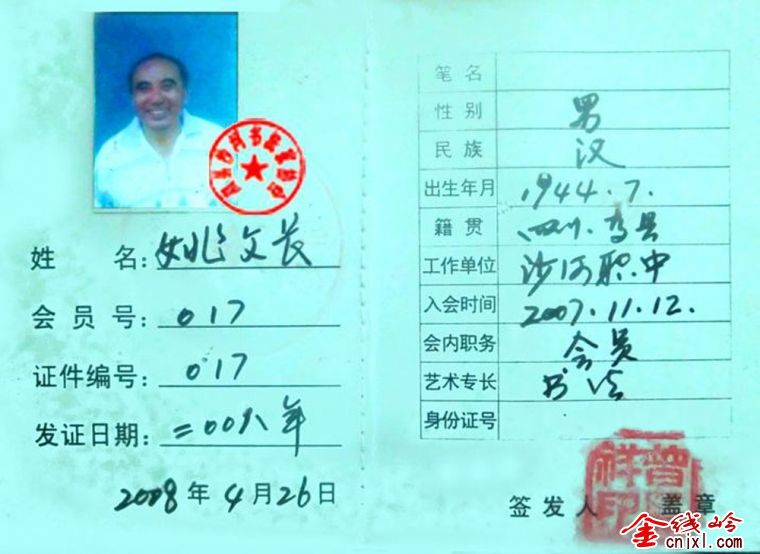 姓 名: 姚文长
会 员 号: 017
证件编号: 017
发证日期: 二00八年
2008年4月26日
笔 名
性 别 男
民 族 汉
出生年月 1944.7.
籍 贯 四川.高县
工作单位 沙河职中
入会时间 2007.11.12.
会内职务 会员
艺术专长 书法
身份证号
签发人 盖章
金线岭
cnjxl.com